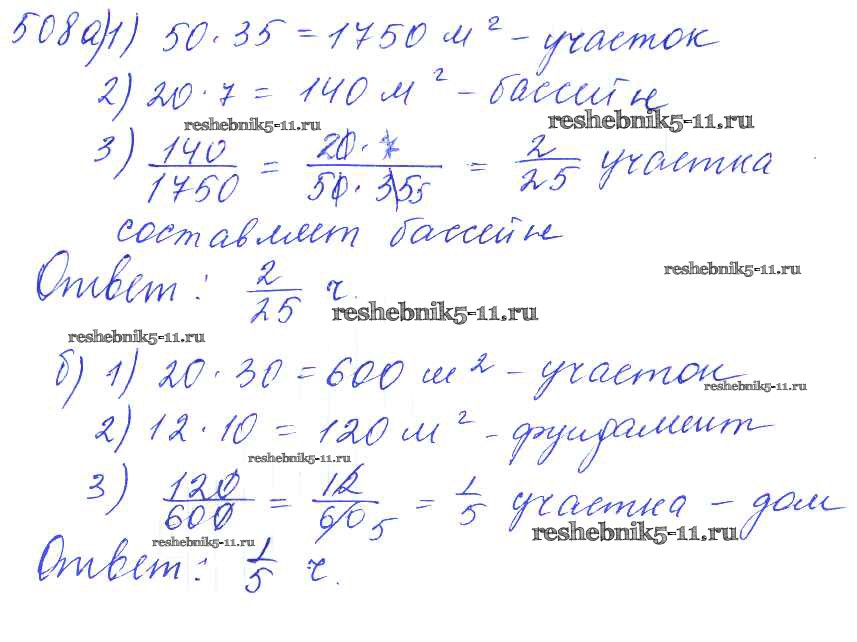 508а)1) 50 · 35 = 1750 м² - участок
2) 20 · 7 = 140 м² - бассейн
reshebnik5-11.ru reshebnik5-11.ru
3) 140/1750 = 20 · 7/50 · 35 5 = 2/25 участка
составляет бассейн
reshebnik5-11.ru
Ответ: 2/25 ч.
reshebnik5-11.ru
reshebnik5-11.ru
б) 1) 20 · 30 = 600 м² - участок
reshebnik5-11.ru
2) 12 · 10 = 120 м² - фундамент
reshebnik5-11.ru
3) 120/600 = 12/60 5 = 1/5 участка - дом
reshebnik5-11.ru
reshebnik5-11.ru
Ответ: 1/5 ч.